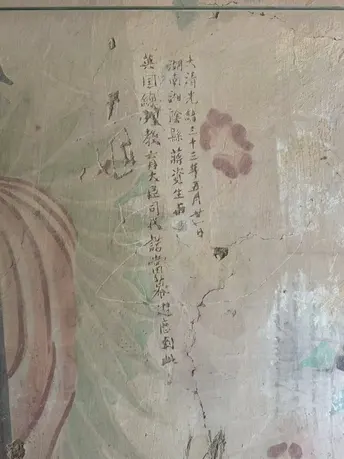 大清光緒三十三年五月廿日
湖南湘陰縣蔣資生
英国總理教育大臣司代諾當幕遊歷到此